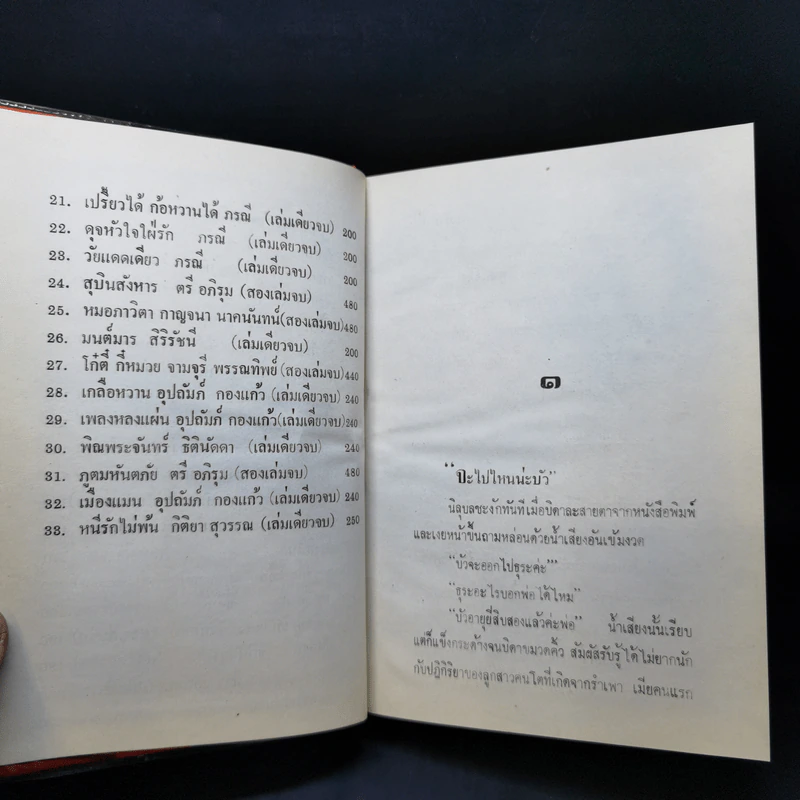 21. เปรี้ยวได้ ก้อหวานได้ ภรณี (เล่มเดียวจบ) 200
22. ดุจหัวใจใฝ่รัก ภรณี (เล่มเดียวจบ) 200
23. วัยแดดเดียว ภรณี (เล่มเดียวจบ) 200
24. สุบินสังหาร ตรี อภิรุม (สองเล่มจบ) 480
25. หมอภาวิตา กาญจนา นาคนันทน์(สองเล่มจบ) 480
26. มนต์มาร สิริรัชนี (เล่มเดียวจบ) 200
27. โก๋ตี๋ กี๋หมวย จามจุรี พรรณทิพย์ (สองเล่มจบ) 440
28. เกลือหวาน อุปถัมภ์ กองแก้ว (เล่มเดียวจบ) 240
29. เพลงหลงแผ่น อุปถัมภ์ กองแก้ว(เล่มเดียวจบ) 240
30. พิณพระจันทร์ ธิตินัดดา (เล่มเดียวจบ) 240
31. ภูตมหันตภัย ตรี อภิรุม (สองเล่มจบ) 480
32. เมืองแมน อุปถัมภ์ กองแก้ว (เล่มเดียวจบ) 240
33. หนีรักไม่พ้น กิติยา สุวรรณ (เล่มเดียวจบ) 250
๑
“จะไปไหนน่ะบัว”
นิลุบลชะงักทันทีเมื่อบิดาละสายตาจากหนังสือพิมพ์
และเงยหน้าขึ้นถามหล่อนด้วยน้ำเสียงอันเข้มงวด
“บัวจะออกไปธุระค่ะ”
“ธุระอะไรบอกพ่อได้ไหม”
“บัวอายุยี่สิบสองแล้วค่ะพ่อ” น้ำเสียงนั้นเรียบ
แต่ก็แข็งกระด้างจนบิดาขมวดคิ้ว สัมผัสรับรู้ได้ไม่ยากนัก
กับปฏิกิริยาของลูกสาวคนโตที่เกิดจากรำเพา เมียคนแรก